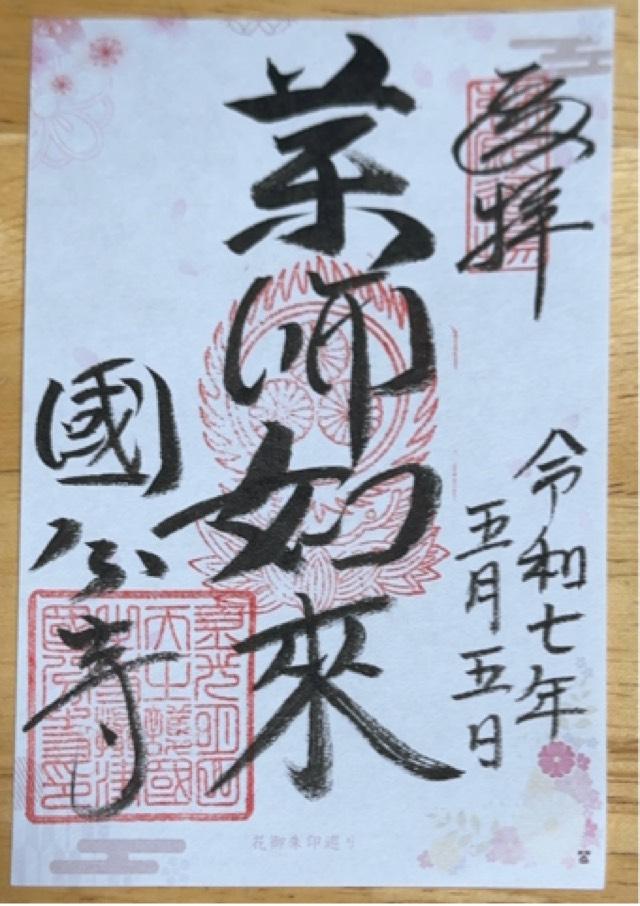 奉拝
令和七年
五月五日
薬師如來
國分寺
花御朱印巡り